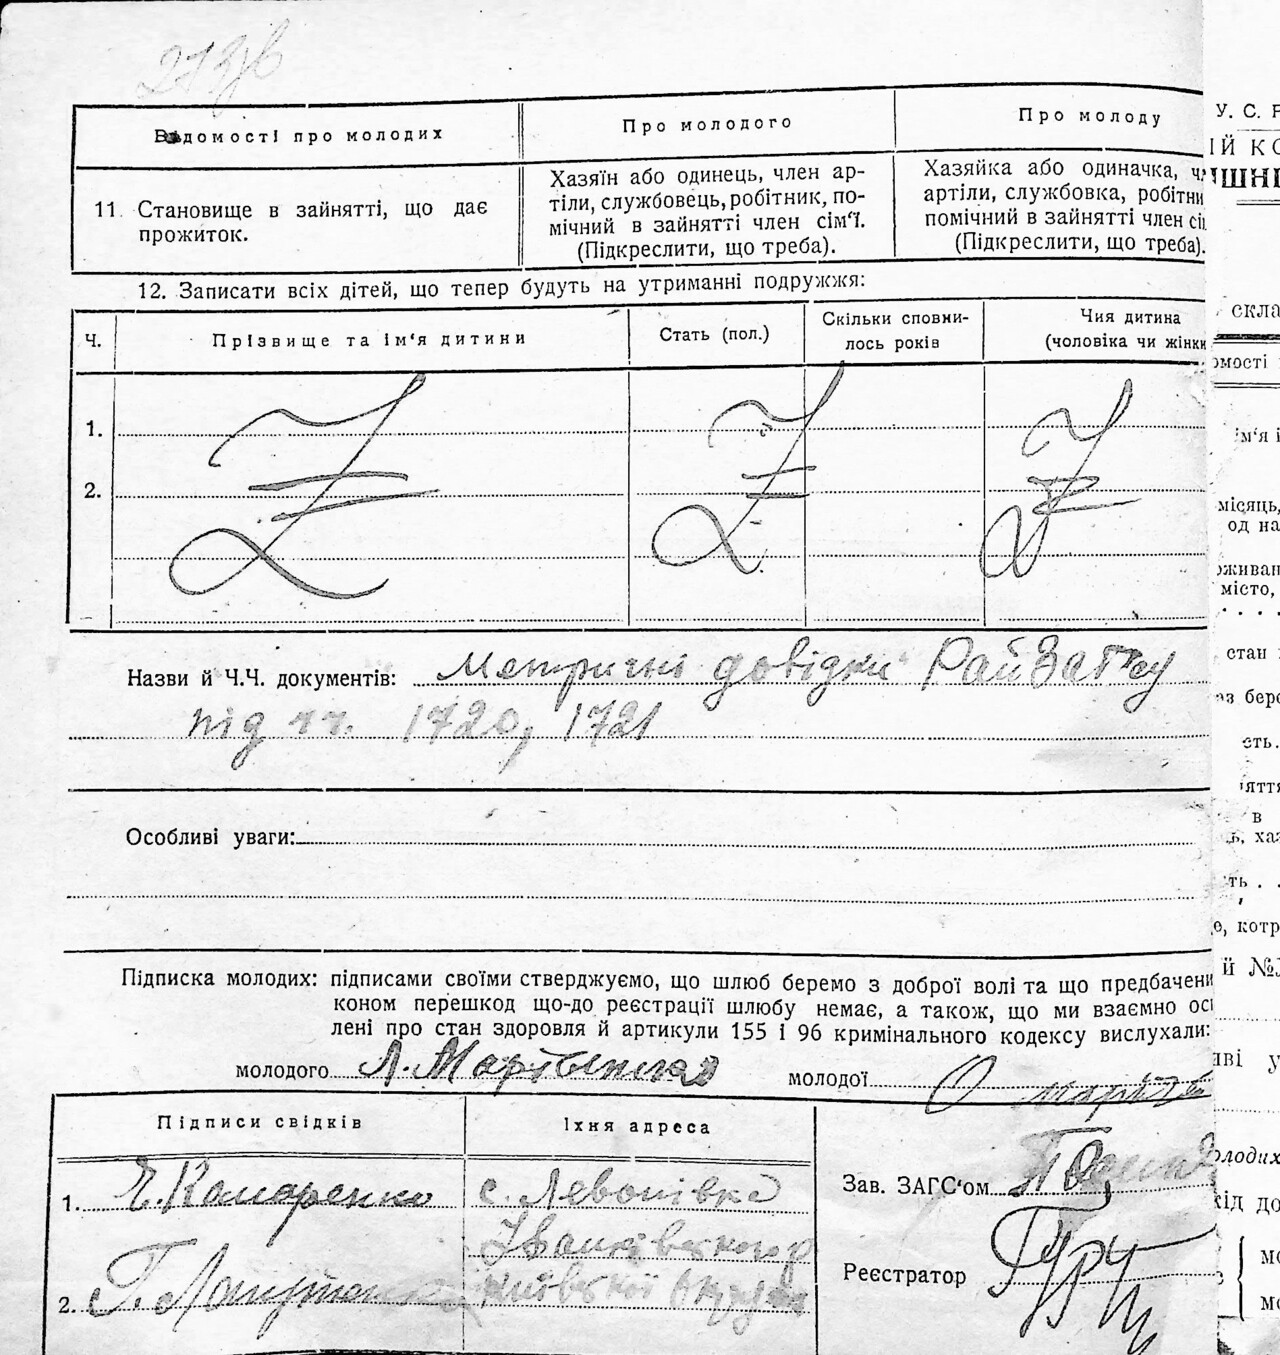 273в
Відомості про молодих
Про молодого
Про молоду
11. Становище в зайнятті, що дає
прожиток.
Хазяїн або одинець, член ар-
тіли, службовець, робітник, по-
мічний в зайнятті член сім'ї.
(Підкреслити, що треба).
Хазяйка або одиначка, ч
артіли, службовка, робітни
помічний в зайнятті член сі
(Підкреслити, що треба).
12. Записати всіх дітей, що тепер будуть на утриманні подружжя:
Ч.
Прізвище та ім'я дитини
Стать (пол.)
Скільки сповни-
лось років
Чия дитина
(чоловіка чи жінки
1.
2.
Назви й Ч.Ч. документів: Метричні довідки РайЗагсу
під чч. 1720, 1721
Особливі уваги:
Підписка молодих: підписами своїми стверджуємо, що шлюб беремо з доброї волі та що предбачени
коном перешкод що-до реєстрації шлюбу немає, а також, що ми взаємно ос
лені про стан здоровля й артикули 155 і 96 кримінального кодексу вислухали:
молодого Л.
молодої О
Підписи свідків
Їхня адреса
1. Комаренко
с. Леонівка
Іванківського р
2. Г.
Київської Округи
Зав. ЗАГС'ом
Реєстратор
У. С. Р
ІЙ КО
ШНІ
скла
омості
ім'я і
місяць,
од на
оживан
місто,
стан
аз бере
єть.
няття
в
ь, хаз
ть . .
о, котр
й №
иві у
олодих
хід до
мо
мо